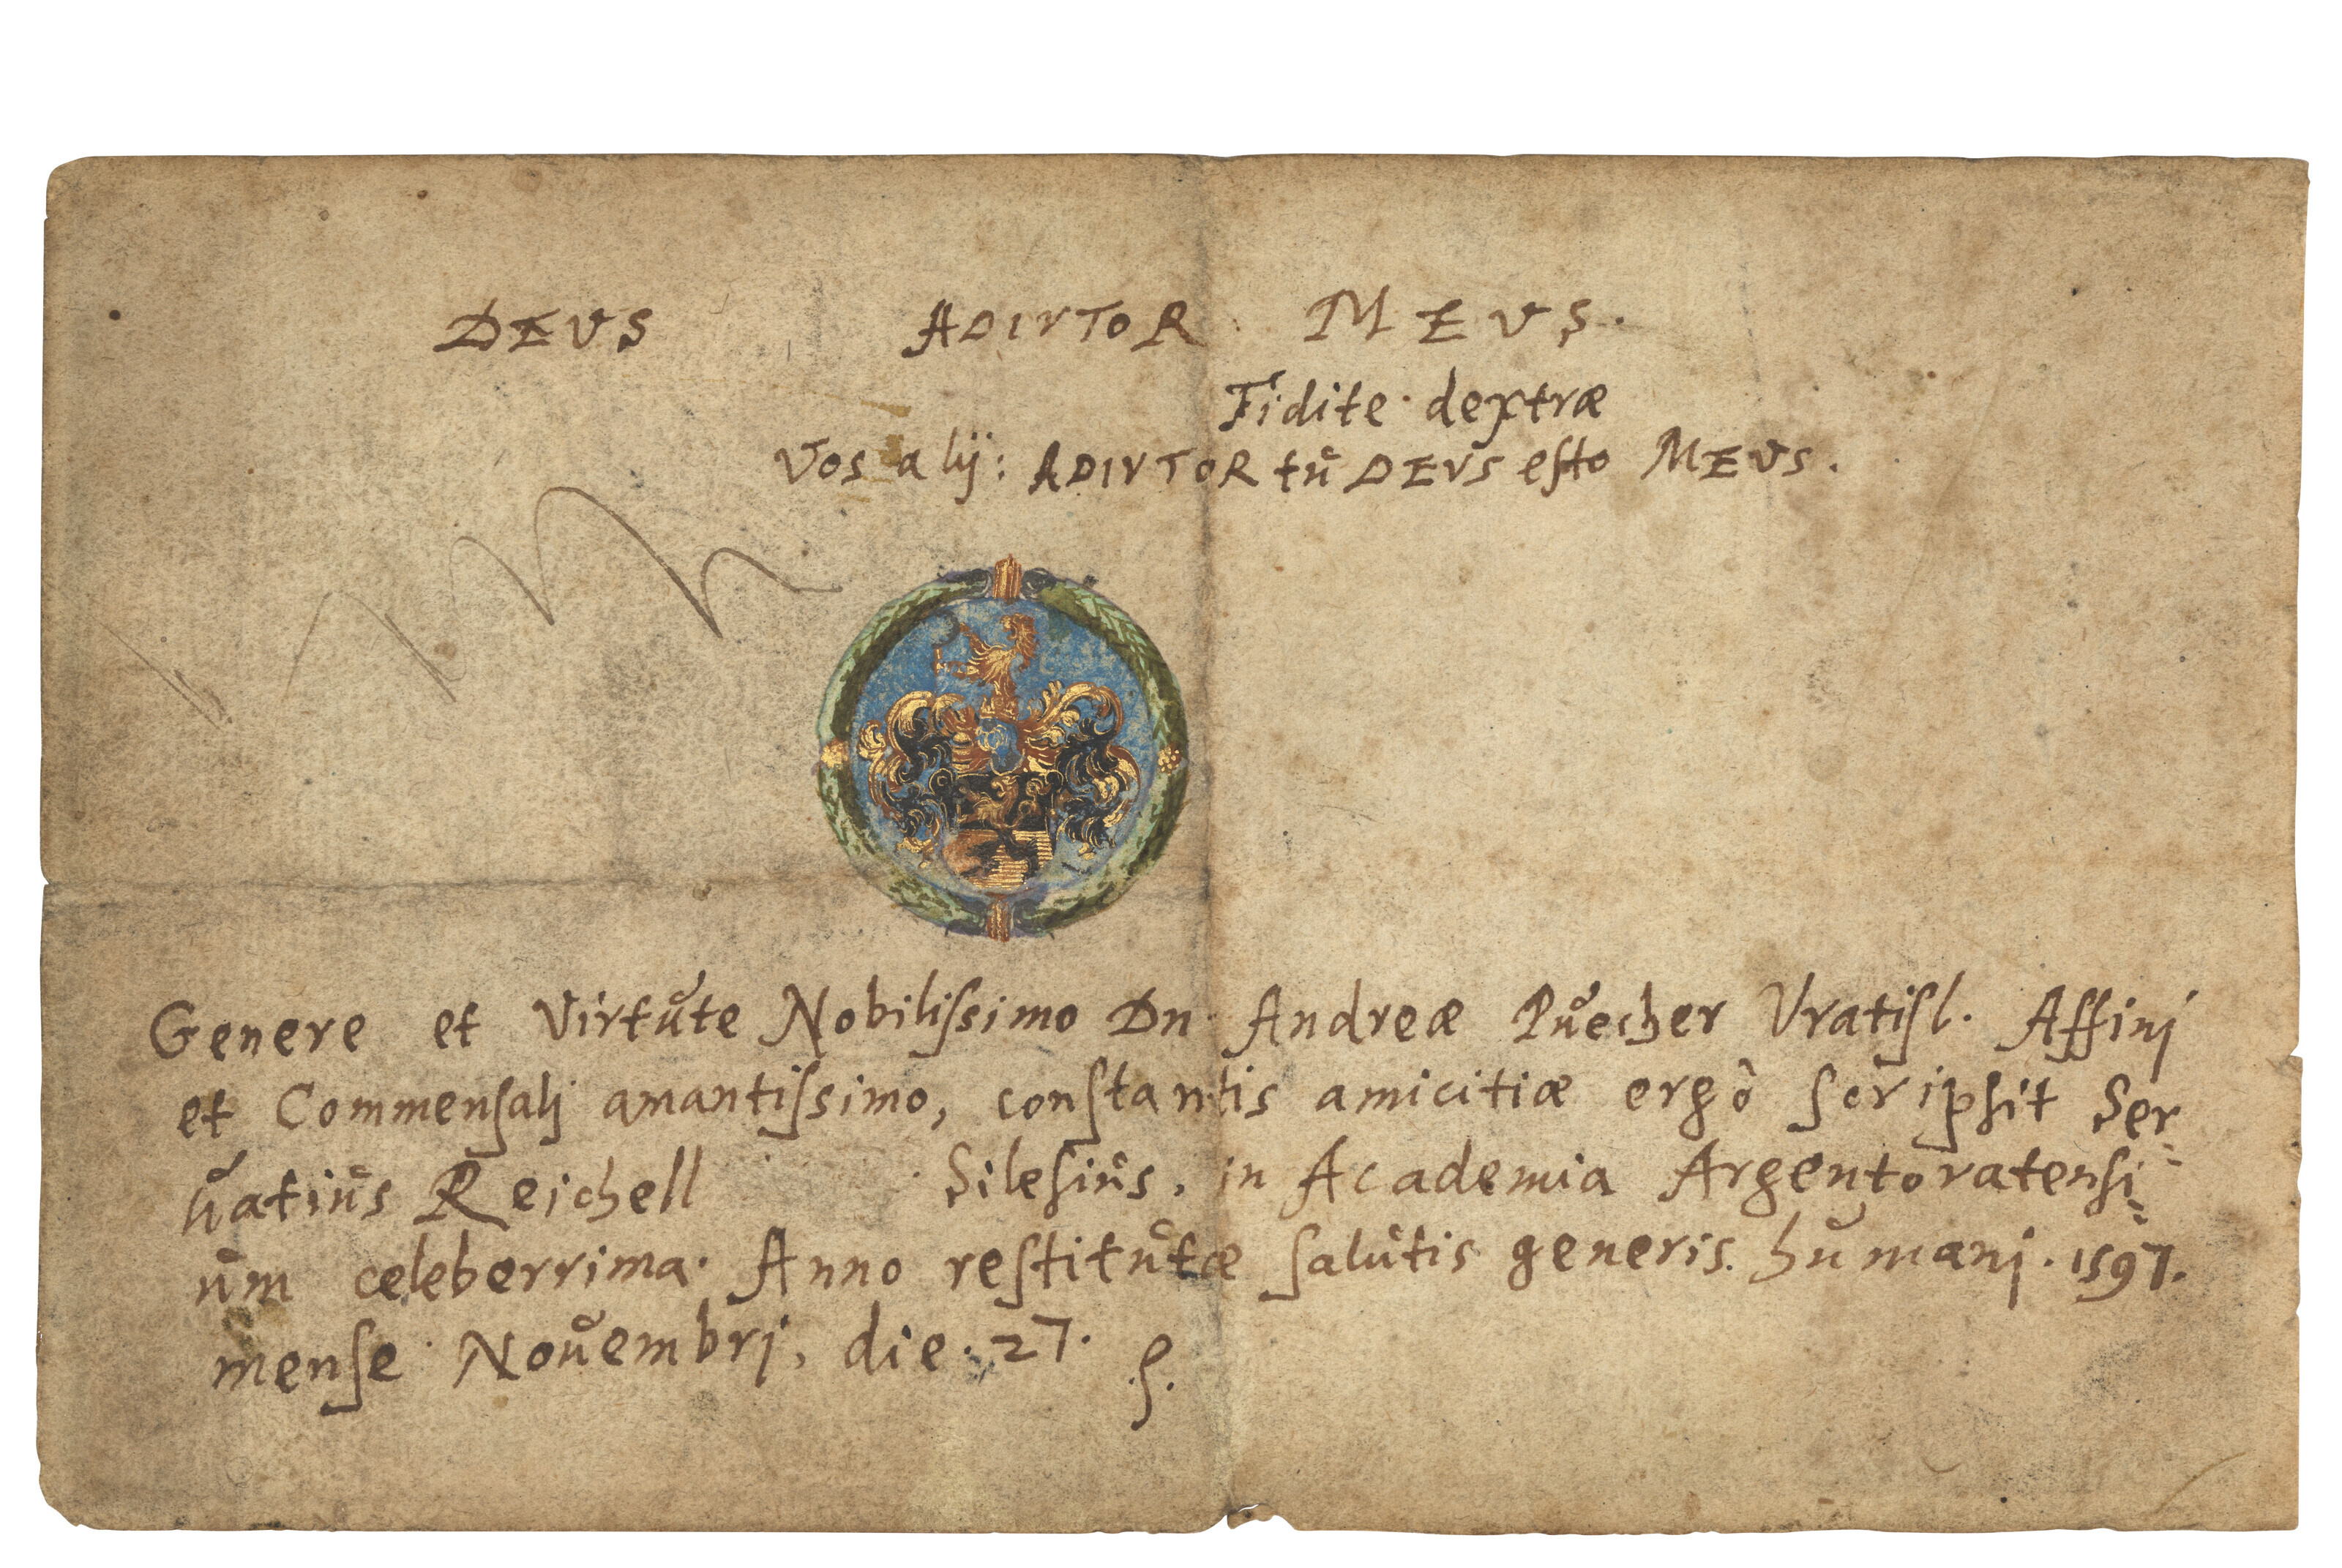 DEVS ADIVTOR MEVS.
Fidite dextræ
Vos alij: ADIVTOR tu DEVS esto MEVS.
Genere et Virtute Nobilissimo Dn. Andreæ Puecher Vratisl. Affinj
et Commensalj amantissimo, constantis amicitiæ ergò scripsit Ser-
uatius Reichell Silesius, in Academia Argentoratensi-
um celeberrima. Anno restitutæ salutis generis humanj. 1597.
mense Nouembrj, die. 27.